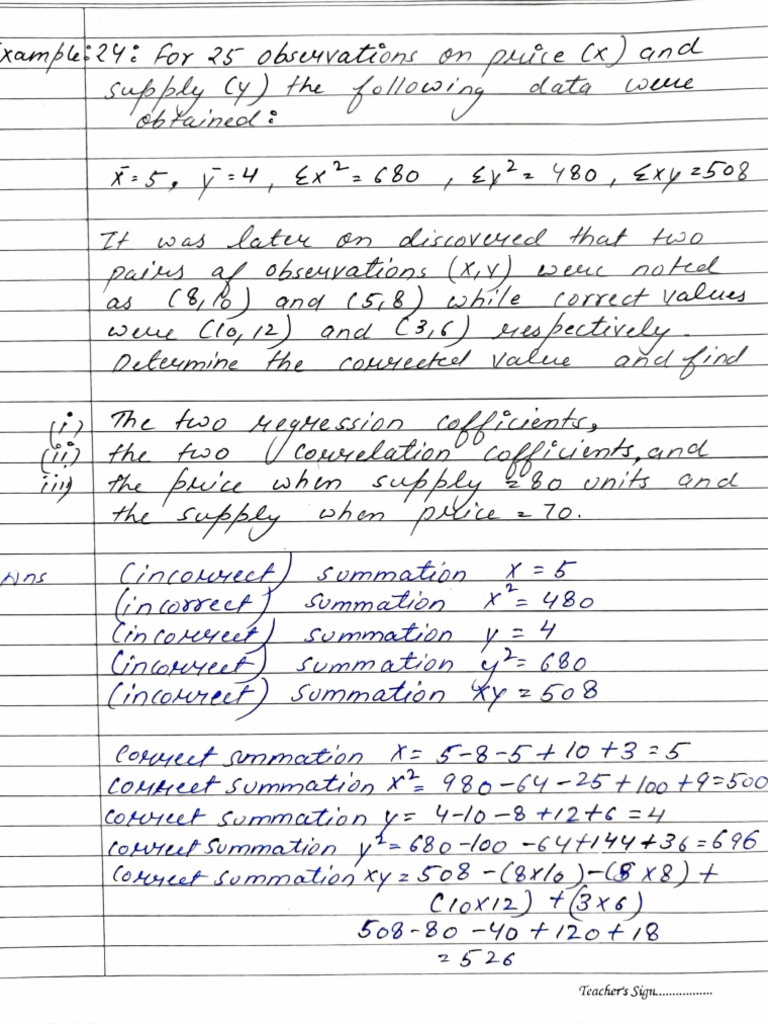 Example:24: For 25 observations on price (x) and
supply (y) the following data were
obtained:
x̄=5, ȳ=4, Σx²=680, Σy²=480, Σxy=508
It was later on discovered that two
pairs of observations (x,y) were noted
as (8,10) and (5,8) while correct values
were (10,12) and (3,6) respectively.
Determine the corrected value and find
(i) The two regression cofficients,
(ii) the two correlation cofficients, and
iii) the price when supply =80 units and
the supply when price = 70.
Ans (incorrect) summation x = 5
(incorrect) summation x² = 480
(incorrect) summation y = 4
(incorrect) summation y² = 680
(incorrect) summation xy = 508
correct summation x = 5-8-5+10+3=5
correct summation x² = 980-64-25+100+9=500
correct summation y = 4-10-8+12+6=4
correct summation y² = 680-100-64+144+36=696
correct summation xy = 508-(8x10)-(5x8)+
(10x12)+(3x6)
508-80-40+120+18
= 526
Teacher's Sign..................